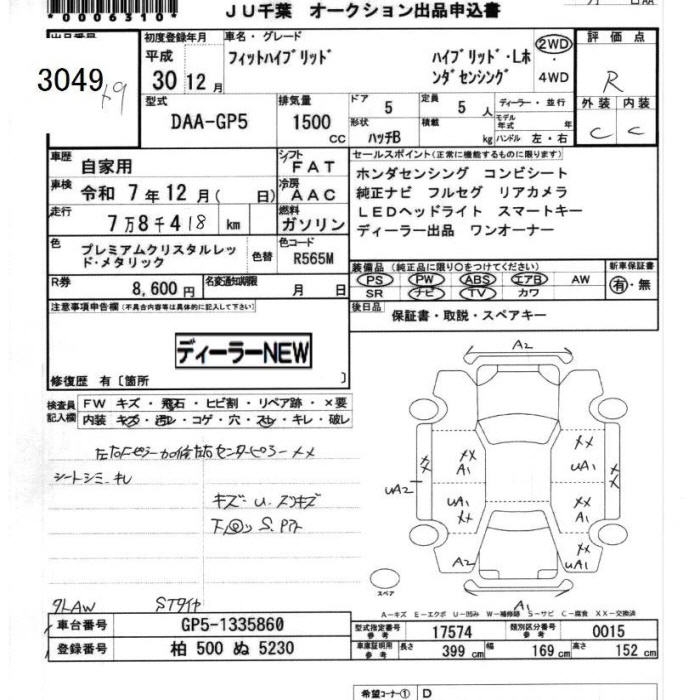 *0006310*
JU千葉 オークション出品申込書
3049
初度登録年月
平成
30 12月
車名・グレード
フィットハイブリッド
ハイブリッド・Lホ
ンダセンシング
2WD
・
4WD
評価点
R
外装 内装
C C
型式
DAA-GP5
排気量
1500
CC
ドア
5
定員
5 人
形状
ハッチB
積載
kg
ディーラー・並行
モデル
年式 年
ハンドル 左・右
車歴
自家用
シフト
FAT
車検
令和 7年12月( 日)
冷房
AAC
走行
7万8千418 km
燃料
ガソリン
色
プレミアムクリスタルレッ
ド・メタリック
色替
色コード
R565M
R券
8,600円
名変通知期限
月 日
セールスポイント(正常に機能するものに限ります)
ホンダセンシング コンビシート
純正ナビ フルセグ リアカメラ
LEDヘッドライト スマートキー
ディーラー出品 ワンオーナー
装備品(純正品に限り○をつけてください)
PS PW ABS エアB AW
SR ナビ TV カワ
新車保証書
有・無
後日品
保証書・取説・スペアキー
注意事項申告欄(不具合内容等は具体的に記入して下さい)
ディーラーNEW
修復歴 有〔箇所 〕
検査員
記入欄
FW キズ・飛石・ヒビ割・リペア跡・×要
内装 キズ・汚レ・コゲ・穴・スレ・キレ・破レ
シートシミ、キレ
キズ U. スリキズ
A2
XX
A1
XX
UA1
XX
UA2
UA1
XX
XX
A1
XX
A2
XX
UA1
A1
スペア
A-キズ E-エクボ U-凹み W-補修跡 S-サビ C-腐食 XX-交換済
車台番号
GP5-1335860
登録番号
柏 500 ぬ 5230
型式指定番号
参考
17574
類別区分番号
参考
0015
車庫証明用
参考
長さ
399 cm
幅
169 cm
高さ
152 cm
希望コーナー① D